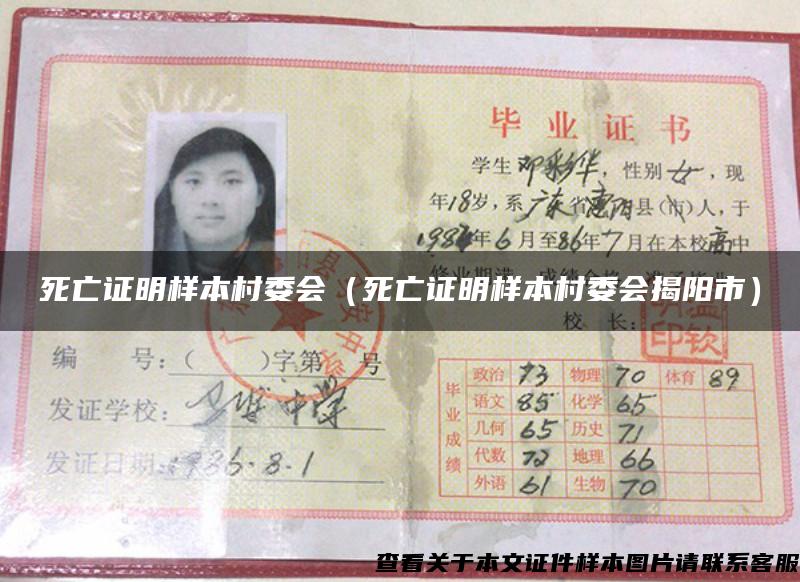 毕业证书
学生邓彩华，性别女，现
年18岁，系广东省惠阳县（市）人，于
1984年6月至86年7月在本校高中
死亡证明样本村委会（死亡证明样本村委会揭阳市）
校 长：
编 号：（ ）字第 号
发证学校：
中学
发证日期：1986.8.1
毕业成绩
政治 73 物理 70 体育 89
语文 85 化学 65
几何 65 历史 71
代数 72 地理 66
外语 61 生物 70
查看关于本文证件样本图片请联系客服